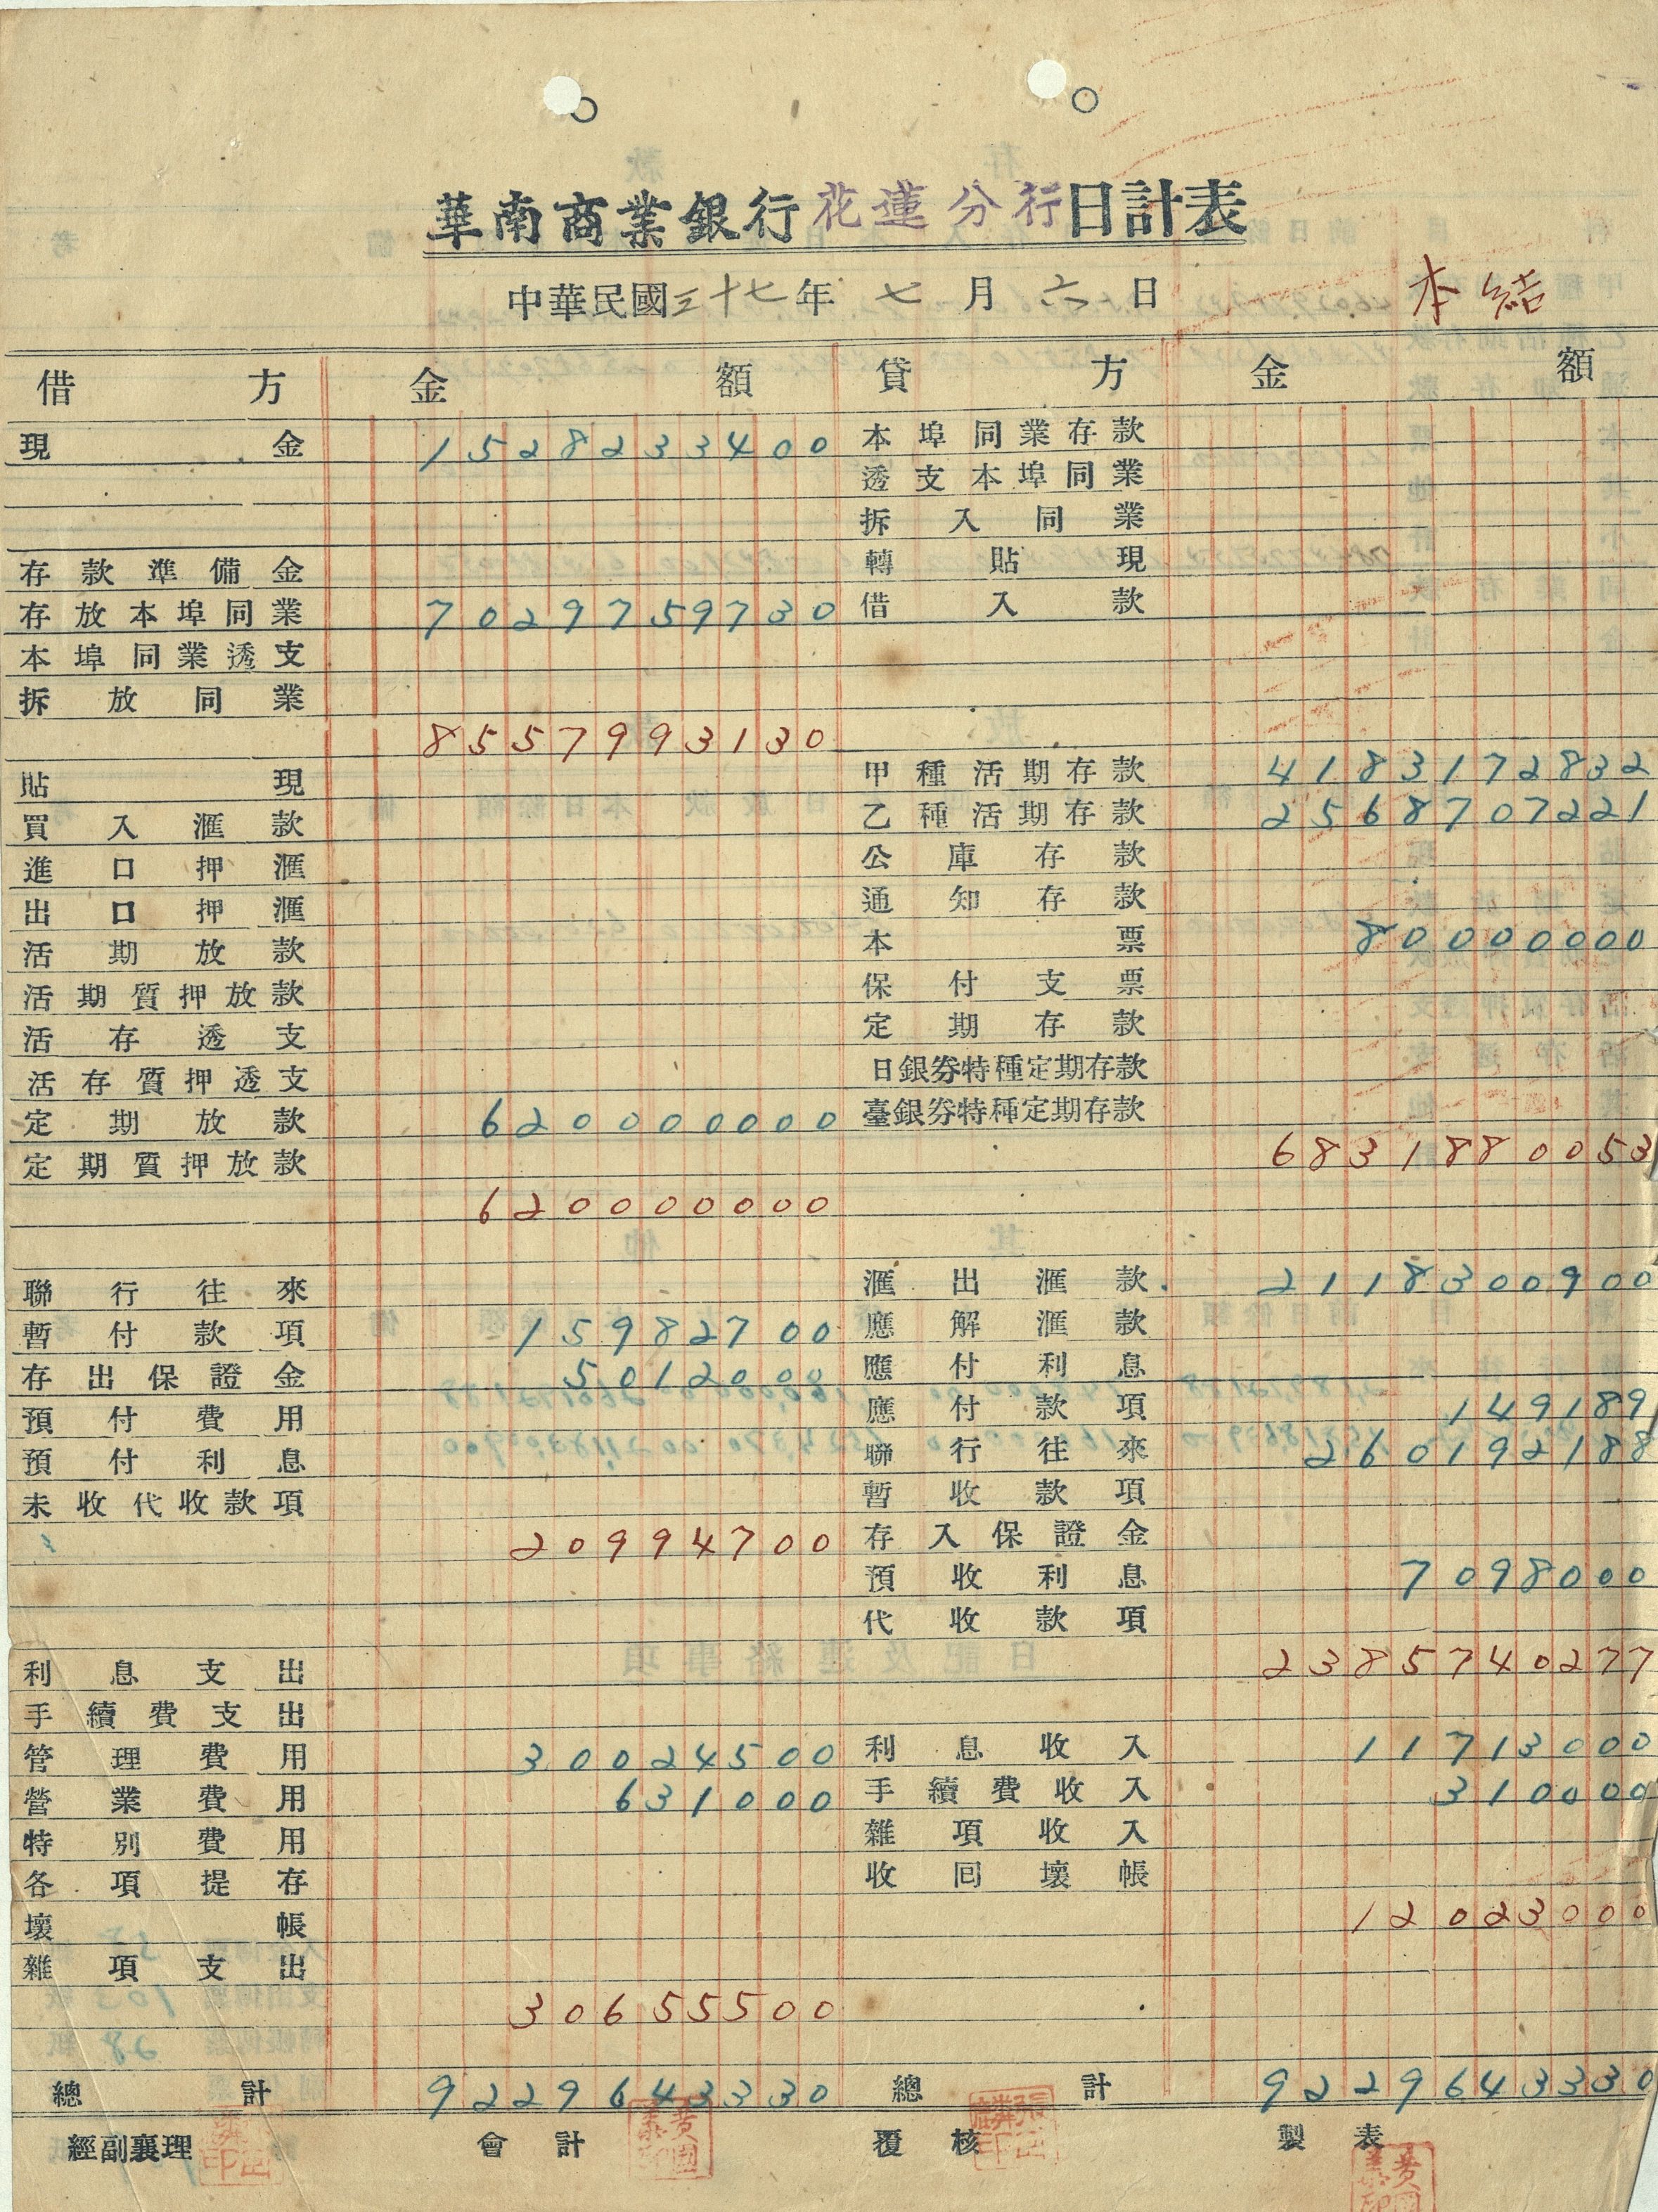 華南商業銀行花蓮分行日計表
中華民國三十七年七月六日
本結
借方 金額
現金 1528233400
存款準備金
存放本埠同業 7029759730
本埠同業透支
拆放同業
8557993130
貼現
買入滙款
進口押滙
出口押滙
活期放款
活期質押放款
活存透支
活存質押透支
定期放款 620000000
定期質押放款
620000000
聯行往來
暫付款項 15982700
存出保證金 5012000
預付費用
預付利息
未收代收款項
20994700
利息支出
手續費支出
管理費用 30024500
營業費用 631000
特別費用
各項提存
壞帳
雜項支出
30655500
總計 9229643330
貸方 金額
本埠同業存款
透支本埠同業
拆入同業
轉貼現
借入款
甲種活期存款 4183172832
乙種活期存款 2568707221
公庫存款
通知存款
本票 80000000
保付支票
定期存款
日銀券特種定期存款
臺銀券特種定期存款
6831880053
滙出滙款 2118300900
應解滙款
應付利息
應付款項 149189
聯行往來 260192188
暫收款項
存入保證金
預收利息 7098000
代收款項
2385740277
利息收入 11713000
手續費收入 310000
雜項收入
收回壞帳
12023000
總計 9229643330
經副襄理 會計 覆核 製表